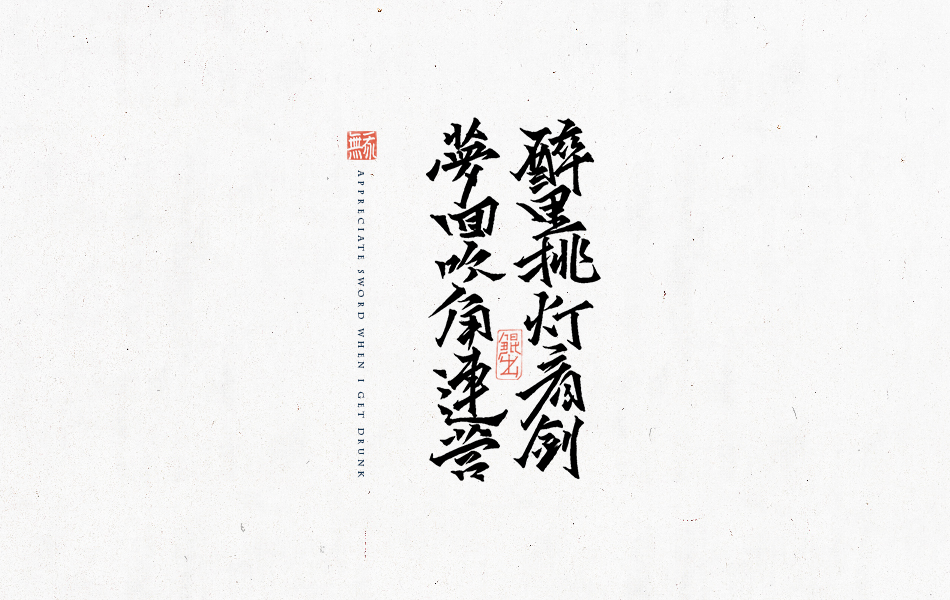 醉里挑灯看剑
夢回吹角連营
APPRECIATE SWORD WHEN I GET DRUNK